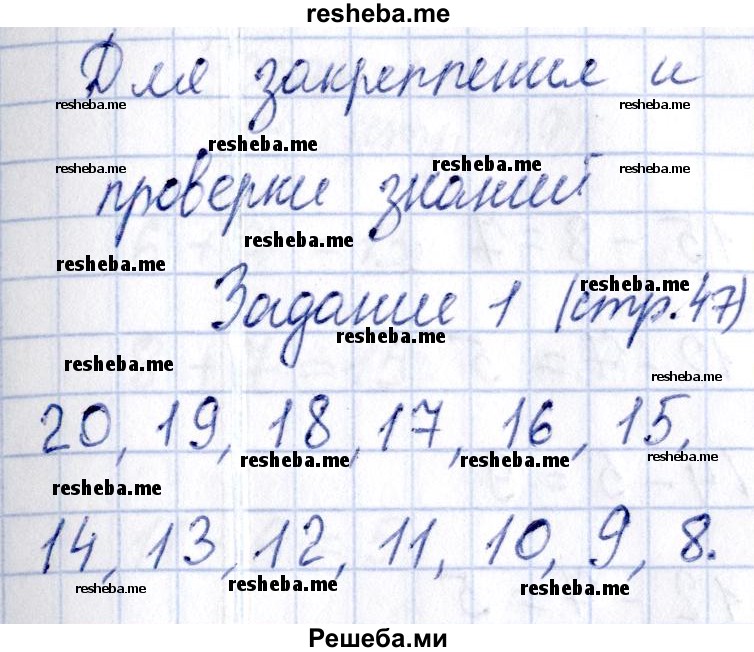 resheba.me
Для закрепления и
resheba.me resheba.me
resheba.me
resheba.me resheba.me resheba.me
проверки знаний
resheba.me
resheba.me
resheba.me
Задание 1 (стр.47)
resheba.me
resheba.me
resheba.me
20, 19, 18, 17, 16, 15,
resheba.me resheba.me resheba.me
resheba.me
14, 13, 12, 11, 10, 9, 8.
resheba.me resheba.me resheba.me
Решеба.ми